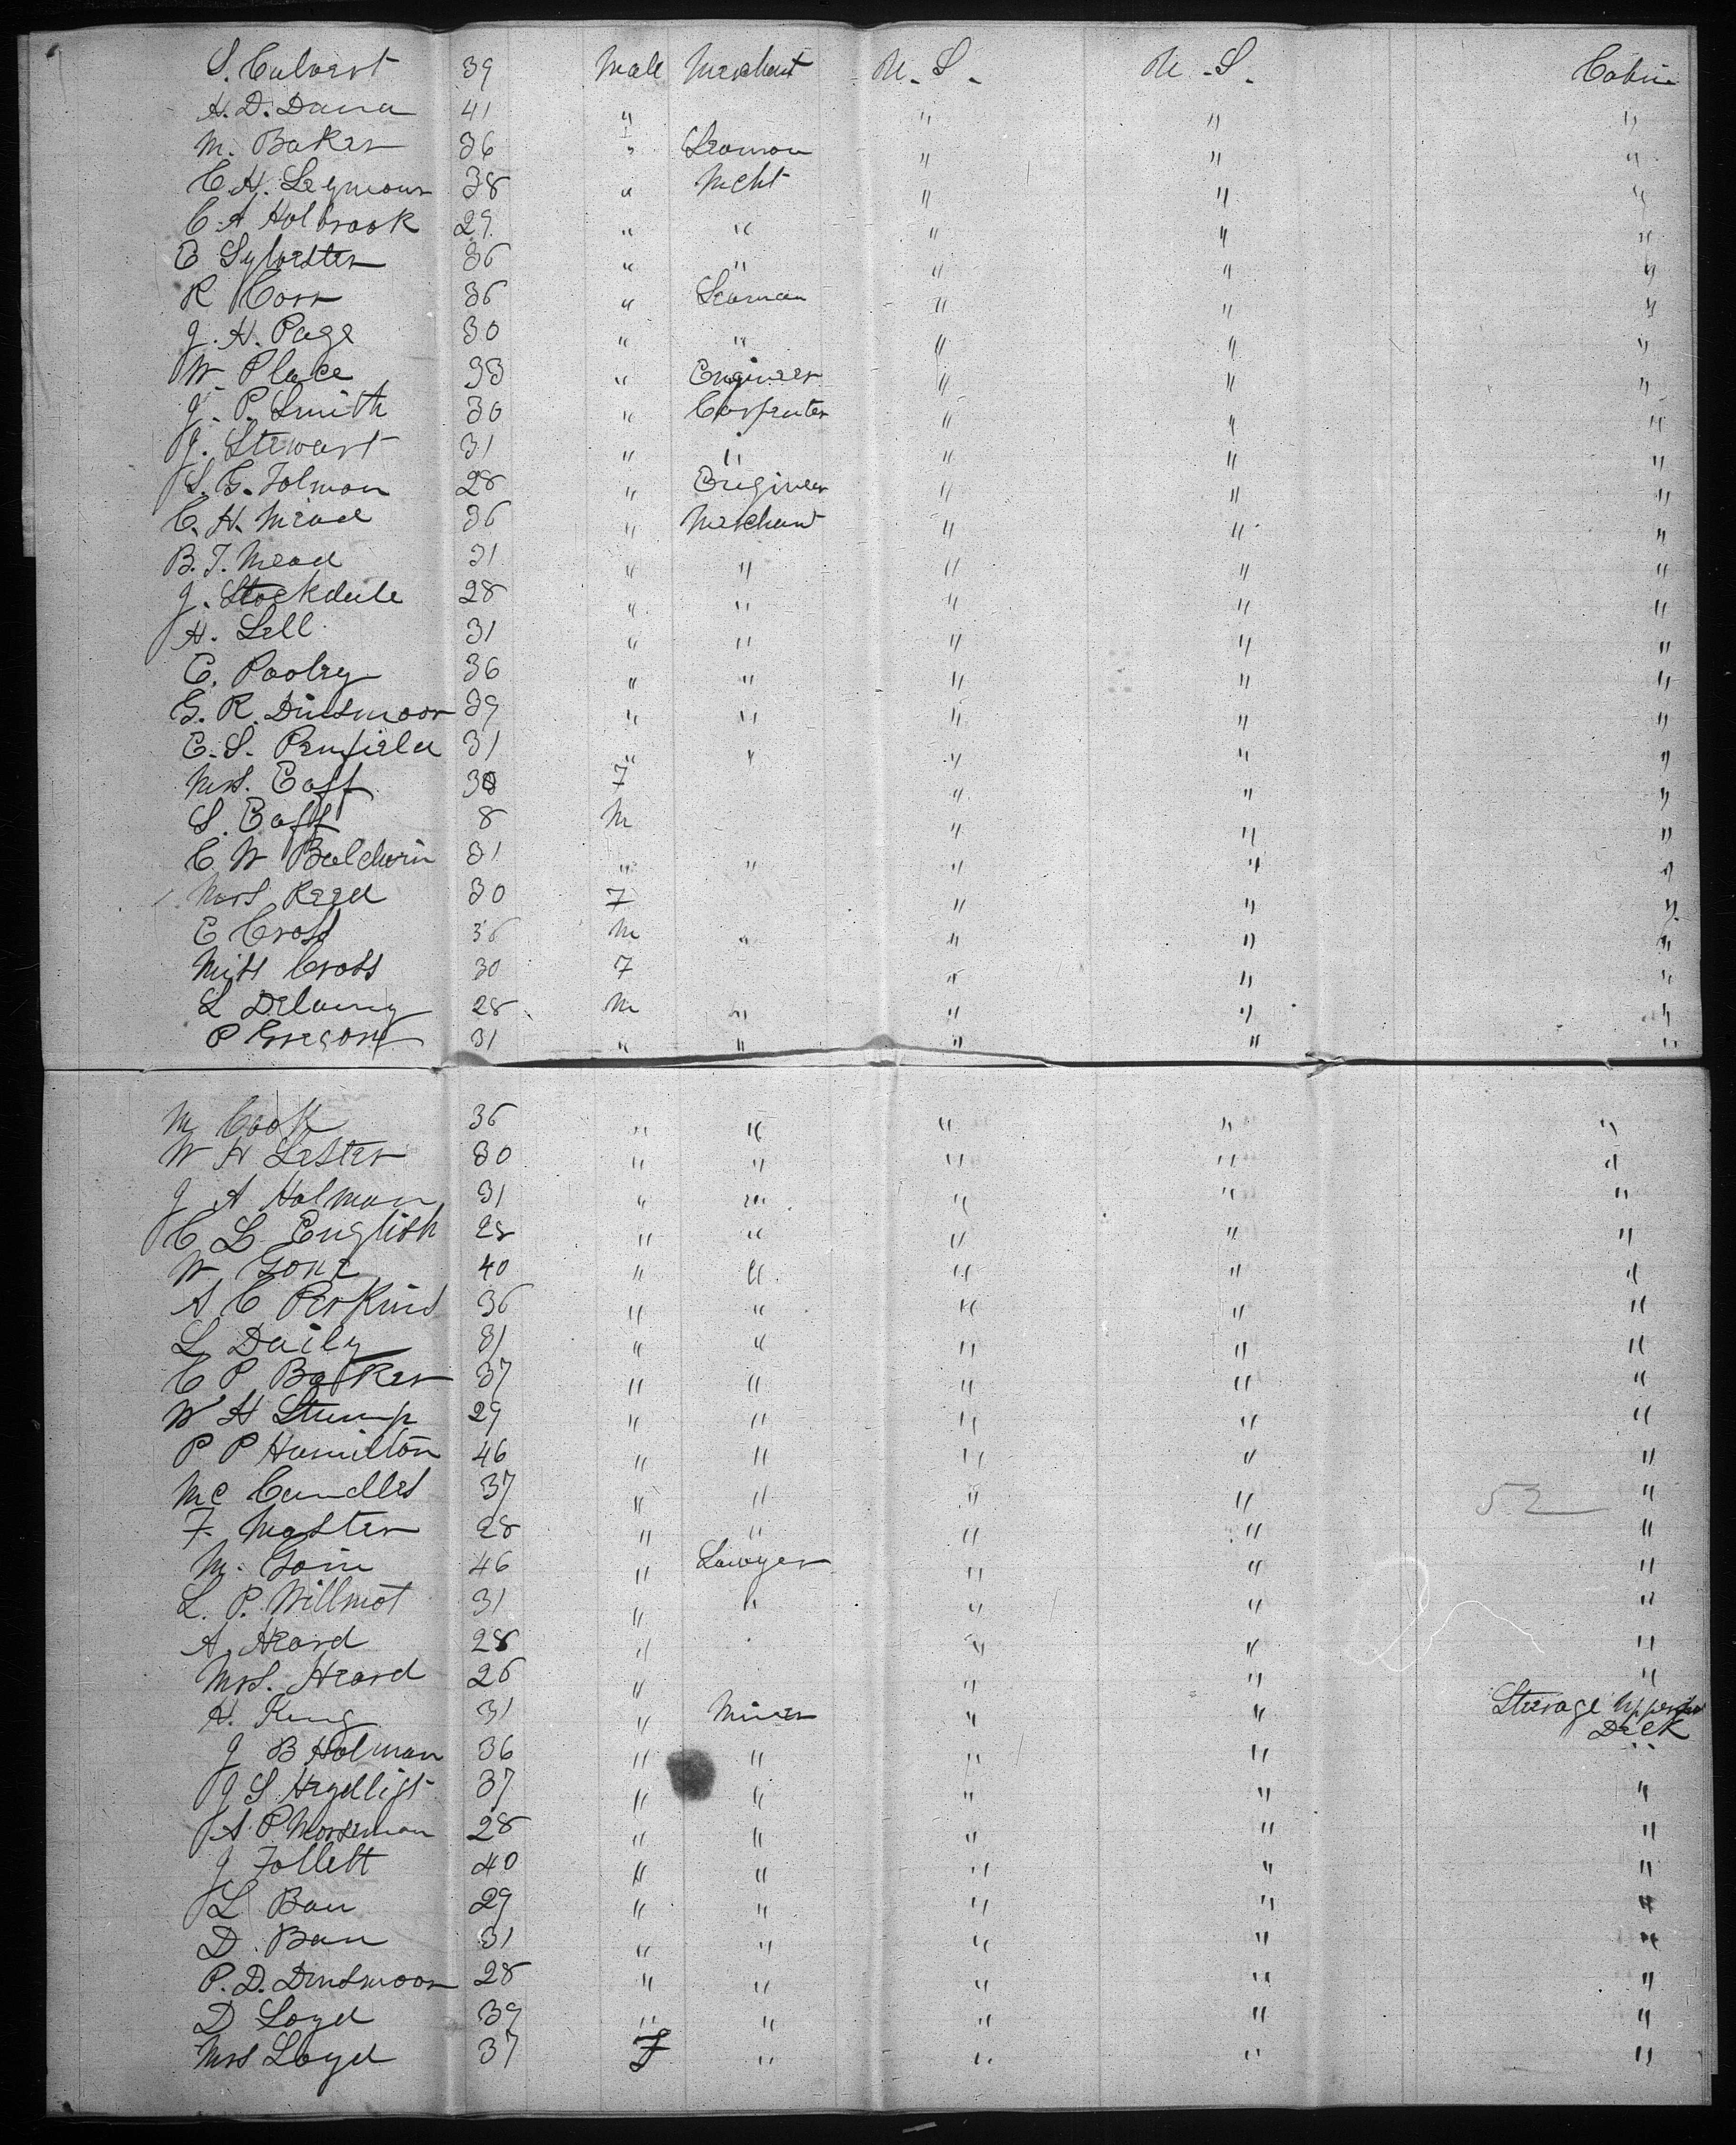 S. Culvert 39 Male Merchant U. S. U. S. Cabin
H. D. Dana 41 " " " " "
M. Baker 36 " Seaman " " "
C. H. Seymour 38 " Mcht " " "
C. A Holbrook 29 " " " " "
E Sylvester 36 " " " " "
R Corr 36 " Seaman " " "
J. H. Page 30 " " " " "
W. Place 33 " Engineer " " "
J. P. Smith 30 " Carpenter " " "
J. Stewart 31 " " " " "
S. G. Tolman 28 " Engineer " " "
C. H. Mead 36 " Merchant " " "
B. T. Mead 31 " " " " "
J. Stockdale 28 " " " " "
H. Sell 31 " " " " "
C. Pooley 36 " " " " "
G. R. Dinsmoor 39 " " " " "
E. S. Penfield 31 " " " " "
Mrs. Goff 30 F " " "
S. Goff 8 M " " "
C. W Baldwin 31 " " " " "
Mrs Reed 30 F " " "
E Cross 36 M " " " "
Miss Cross 30 F " " "
L Delaney 28 M " " " "
P Gregory 31 " " " " "
M Cook 36 " " " " "
W H Lester 30 " " " " "
J A Holman 31 " " " " "
C L English 28 " " " " "
W Gone 40 " " " " "
A C Perkins 36 " " " " "
L Daily 31 " " " " "
C P Barker 37 " " " " "
W H Stump 29 " " " " "
P P Hamilton 46 " " " " "
Mc Candles 37 " " " " 52 "
F. Master 28 " " " " "
M. Goin 46 " Lawyer " " "
L. P. Willmot 31 " " " " "
A. Heard 28 " " " "
Mrs. Heard 26 " " " "
H. King 31 " Miner " " Steerage Upper
Deck
J B Holman 36 " " " " "
J S 37 " " " " "
A P Morseman 28 " " " " "
J Follett 40 " " " " "
L Ban 29 " " " " "
D. Ban 31 " " " " "
P. D. Dinsmoor 28 " " " " "
D Loyd 39 " " " " "
Mrs Loyd 37 F " " " "